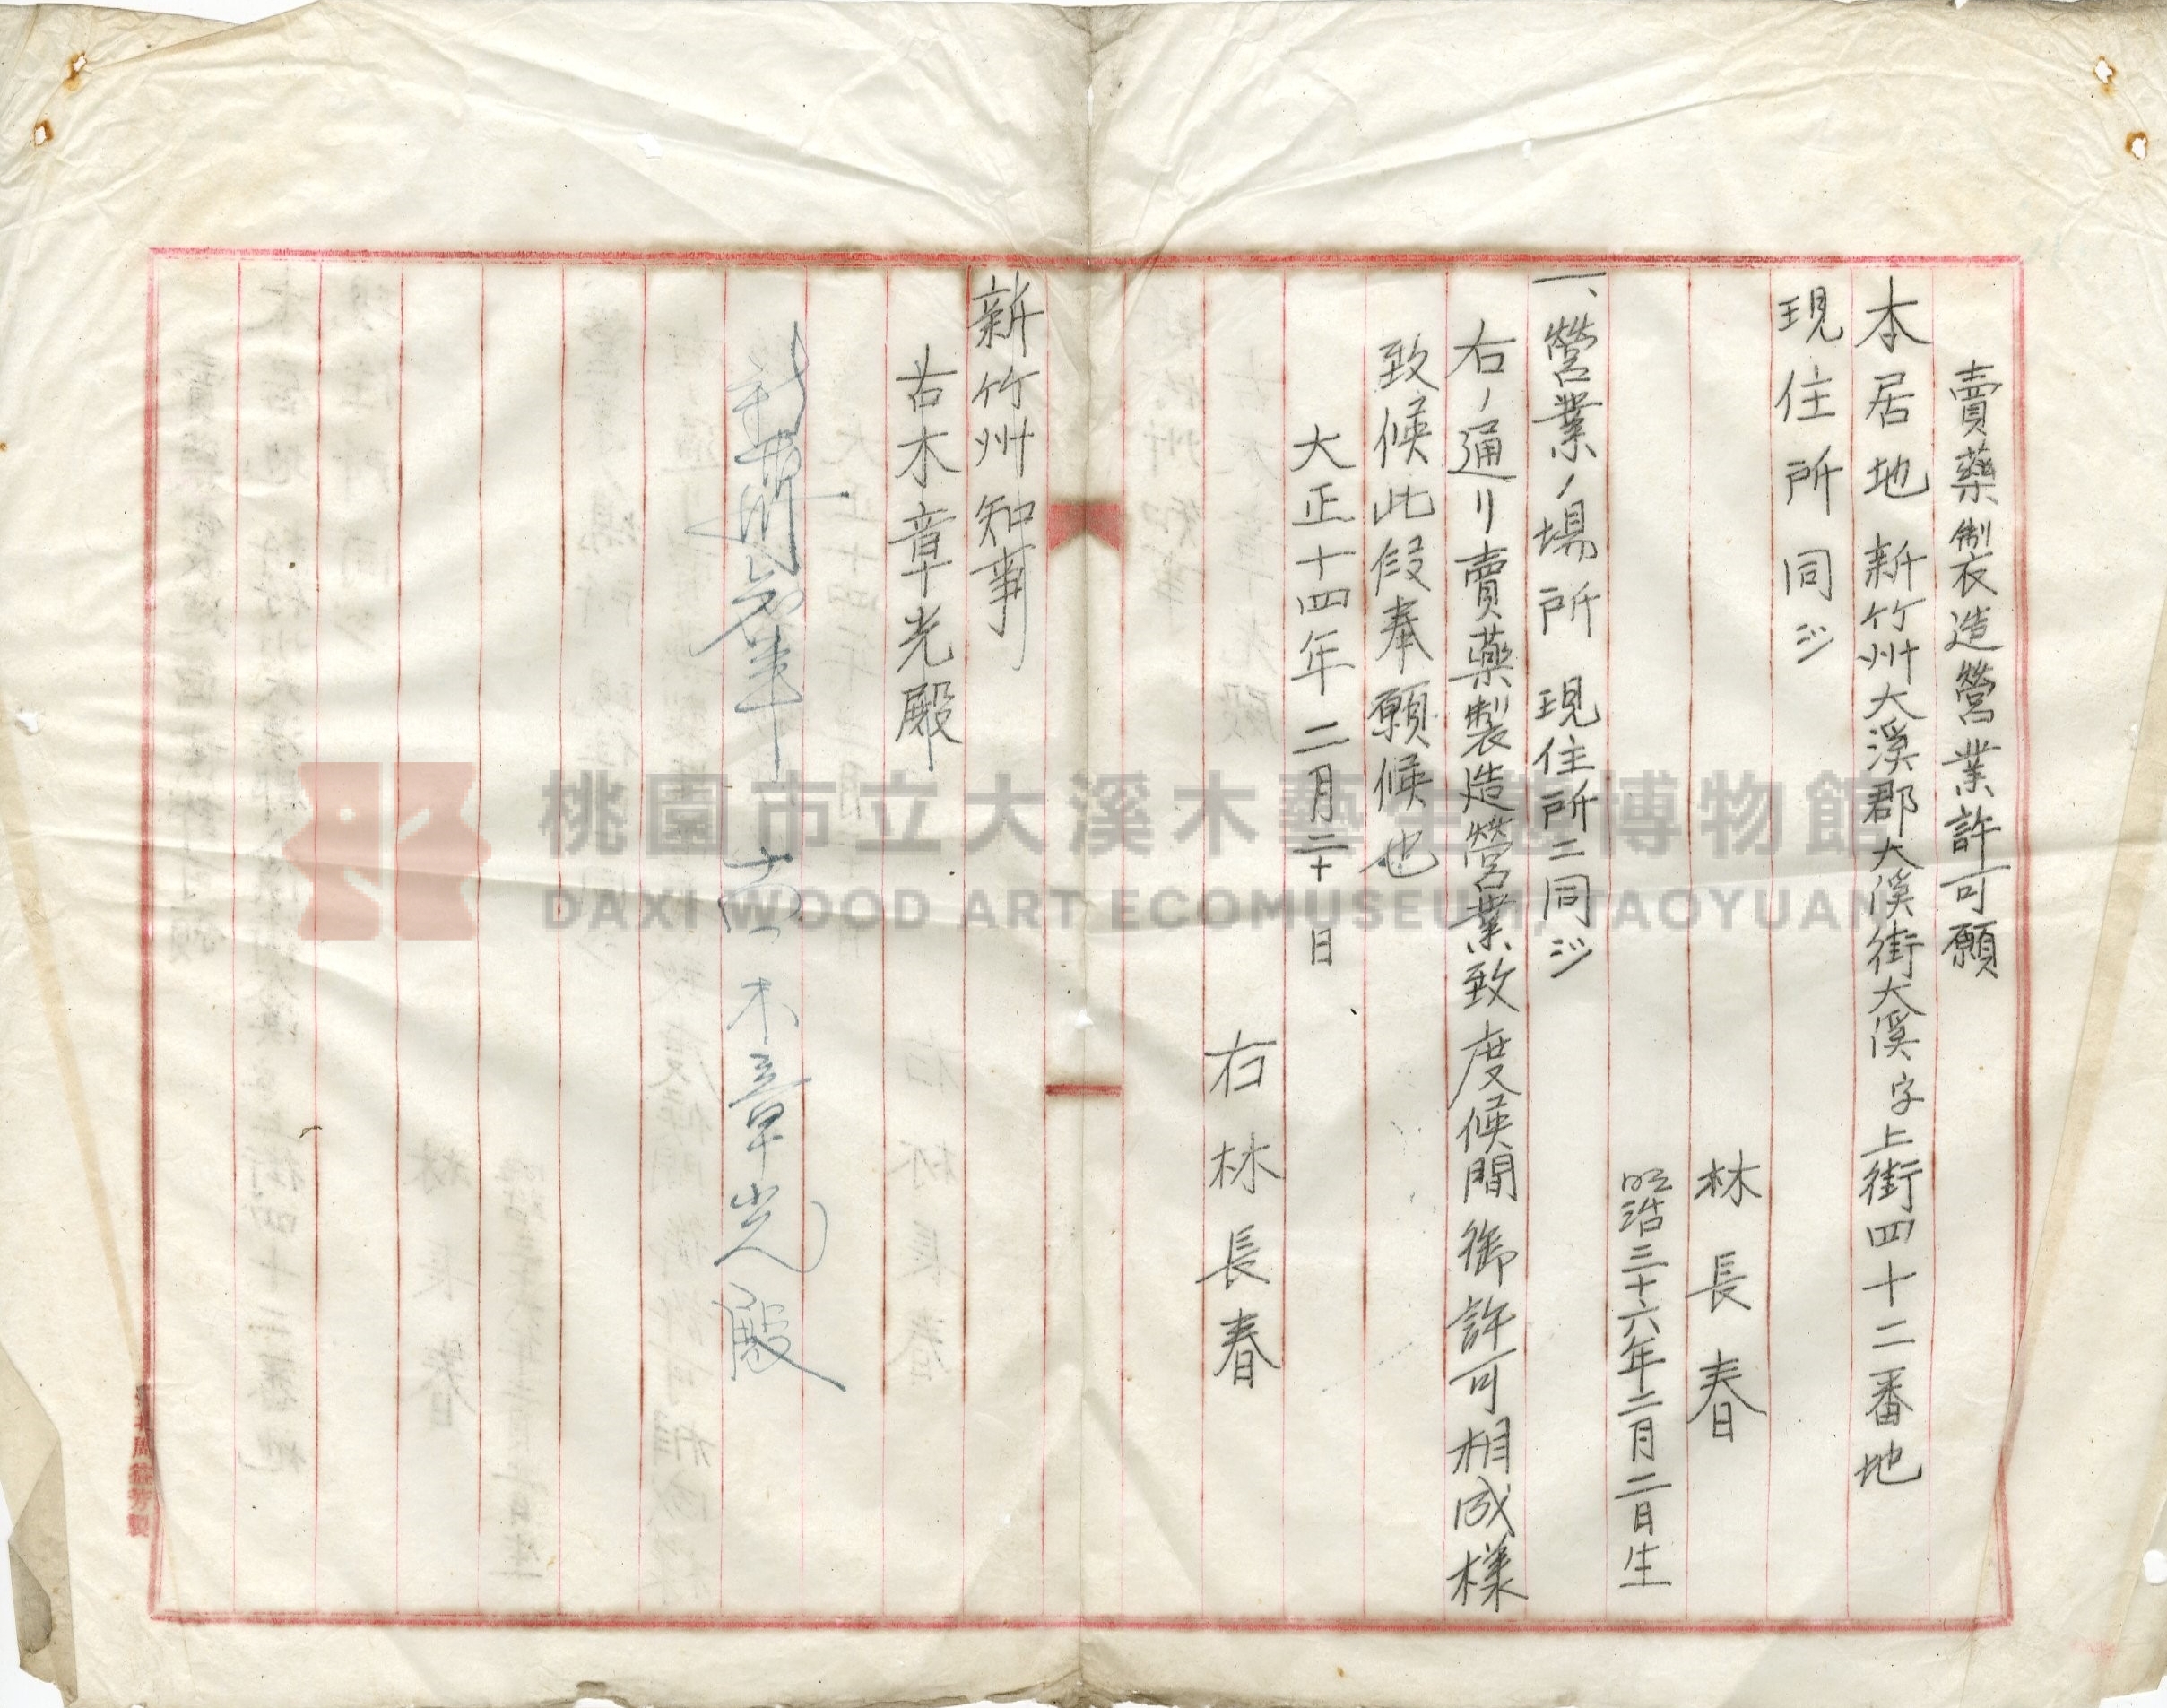 賣藥製造營業許可願
本居地 新竹州大溪郡大溪街大溪字上街四十二番地
現住所 同ジ
林長春
明治三十六年二月二日生
一、營業ノ場所 現住所ニ同ジ
右ノ通リ賣藥製造營業致度候間御許可相成樣
致候此段奉願候也
大正十四年二月二十日
右 林長春
新竹州知事
古木章光殿
古木章光殿
桃園市立大溪木藝生態博物館
DAXI WOOD ART ECOMUSEUM, TAOYUAN